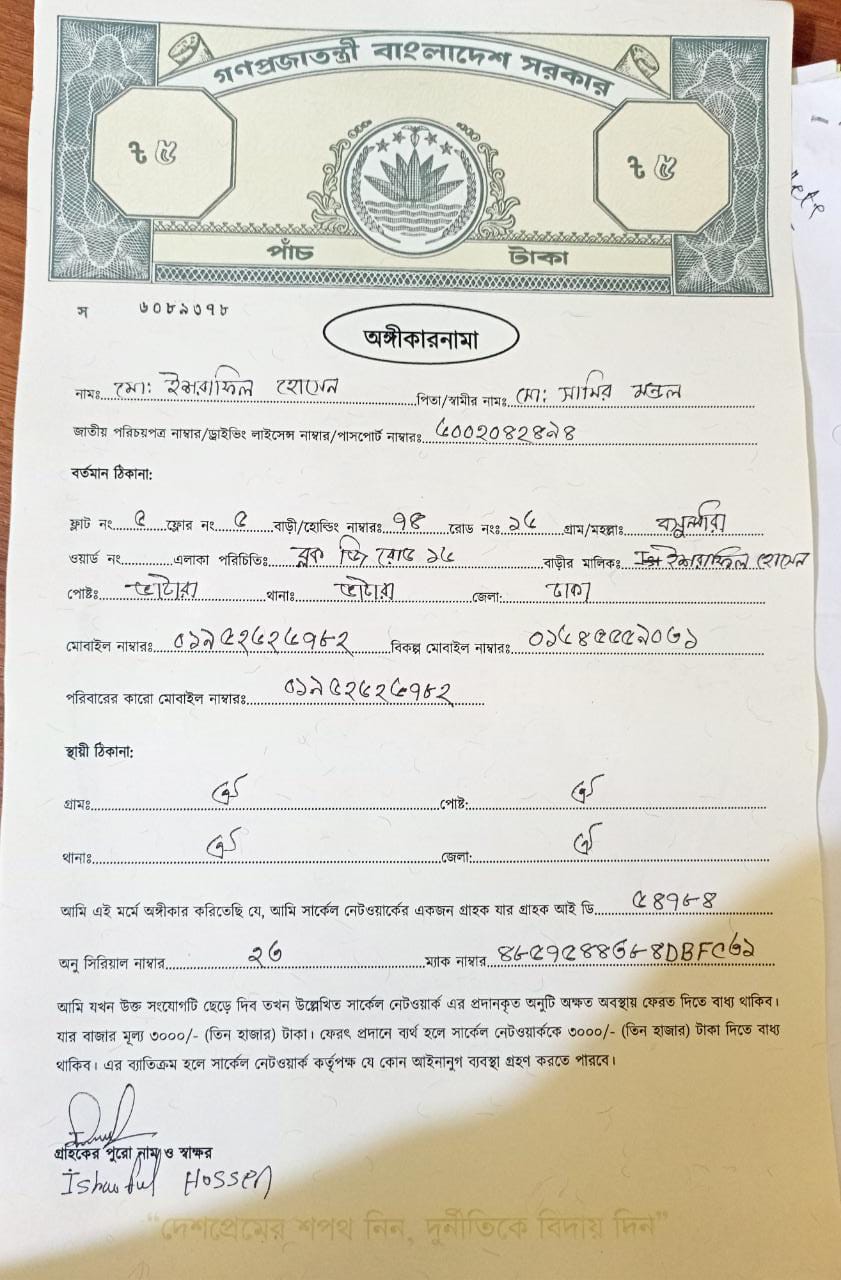 গণপ্রজাতন্ত্রী বাংলাদেশ সরকার
৳ ৫ ৳ ৫
পাঁচ টাকা
স ৬০৮৯৩৭৮
অঙ্গীকারনামা
নামঃ মো: ইশরাফিল হোসেন পিতা/স্বামীর নামঃ মো: সামির মন্ডল
জাতীয় পরিচয়পত্র নাম্বার/ড্রাইভিং লাইসেন্স নাম্বার/পাসপোর্ট নাম্বারঃ
বর্তমান ঠিকানা:
ফ্লাট নং ৫ ফ্লোর নং ৫ বাড়ী/হোল্ডিং নাম্বারঃ ৭৪ রোড নংঃ ১৫ গ্রাম/মহল্লাঃ বসুন্ধরা
ওয়ার্ড নং এলাকা পরিচিতিঃ ব্লক জি রোড ১৫ বাড়ীর মালিকঃ ইশরাফিল হোসেন
পোষ্টঃ ভাটারা থানাঃ ভাটারা জেলা: ঢাকা
মোবাইল নাম্বারঃ ০১৯৫২৬২৬৭৮২ বিকল্প মোবাইল নাম্বারঃ
পরিবারের কারো মোবাইল নাম্বারঃ ০১৯৫২৬২৬৭৮২
স্থায়ী ঠিকানা:
গ্রামঃ ঐ পোষ্ট: ঐ
থানাঃ ঐ জেলা: ঐ
আমি এই মর্মে অঙ্গীকার করিতেছি যে, আমি সার্কেল নেটওয়ার্কের একজন গ্রাহক যার গ্রাহক আই ডি ৫৪৭৮৪
অনু সিরিয়াল নাম্বার ২৩ ম্যাক নাম্বার
আমি যখন উক্ত সংযোগটি ছেড়ে দিব তখন উল্লেখিত সার্কেল নেটওয়ার্ক এর প্রদানকৃত অনুটি অক্ষত অবস্থায় ফেরত দিতে বাধ্য থাকিব।
যার বাজার মূল্য ৩০০০/- (তিন হাজার) টাকা। ফেরৎ প্রদানে ব্যর্থ হলে সার্কেল নেটওয়ার্ককে ৩০০০/- (তিন হাজার) টাকা দিতে বাধ্য
থাকিব। এর ব্যতিক্রম হলে সার্কেল নেটওয়ার্ক কর্তৃপক্ষ যে কোন আইনানুগ ব্যবস্থা গ্রহণ করতে পারবে।
গ্রহিকের পুরো নাম ও স্বাক্ষর
HOSSEN
“দেশপ্রেমের শপথ নিন, দুর্নীতিকে বিদায় দিন”